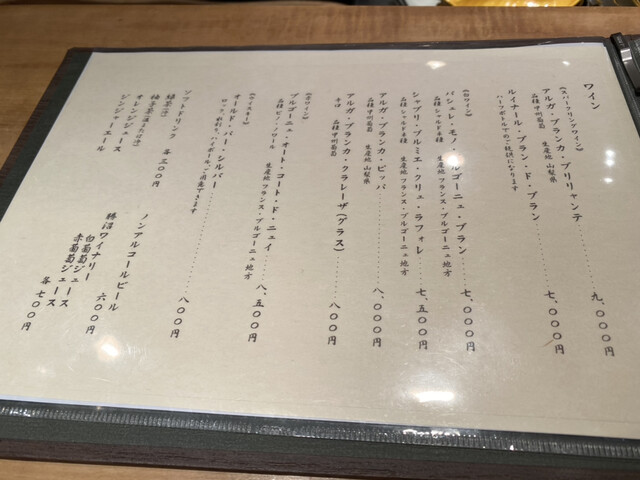 ワイン
《スパークリングワイン》
アルガ・ブランカ・ブリリャンテ……九、〇〇〇円
品種 甲州葡萄 生産地 山梨県
ルイナール・ブラン・ド・ブラン……七、〇〇〇円
ハーフボトルでのご提供になります
《白ワイン》
バシュレ・モノ・ブルゴーニュ・ブラン……七、〇〇〇円
品種 シャルドネ種 生産地 フランス・ブルゴーニュ地方
シャブリ・プルミエ・クリュ・ラフォレ……七、五〇〇円
品種 シャルドネ種 生産地 フランス・ブルゴーニュ地方
アルガ・ブランカ・ピッパ……八、〇〇〇円
品種 甲州葡萄 生産地 山梨県
アルガ・ブランカ・クラレーザ(グラス)……八〇〇円
辛口 品種 甲州葡萄
《赤ワイン》
ブルゴーニュ・オート・コート・ド・ニュイ……八、五〇〇円
品種 ピノ・ノワール 生産地 フランス・ブルゴーニュ地方
《ウイスキー》
オールド・パー・シルバー……八〇〇円
ロック、水割り、ハイボールご用意できます
ソフトドリンク 各三〇〇円
緑茶(冷)
烏龍茶(温または冷)
オレンジジュース
ジンジャーエール
ノンアルコールビール 六〇〇円
勝沼ワイナリー
白葡萄ジュース
赤葡萄ジュース 各七〇〇円